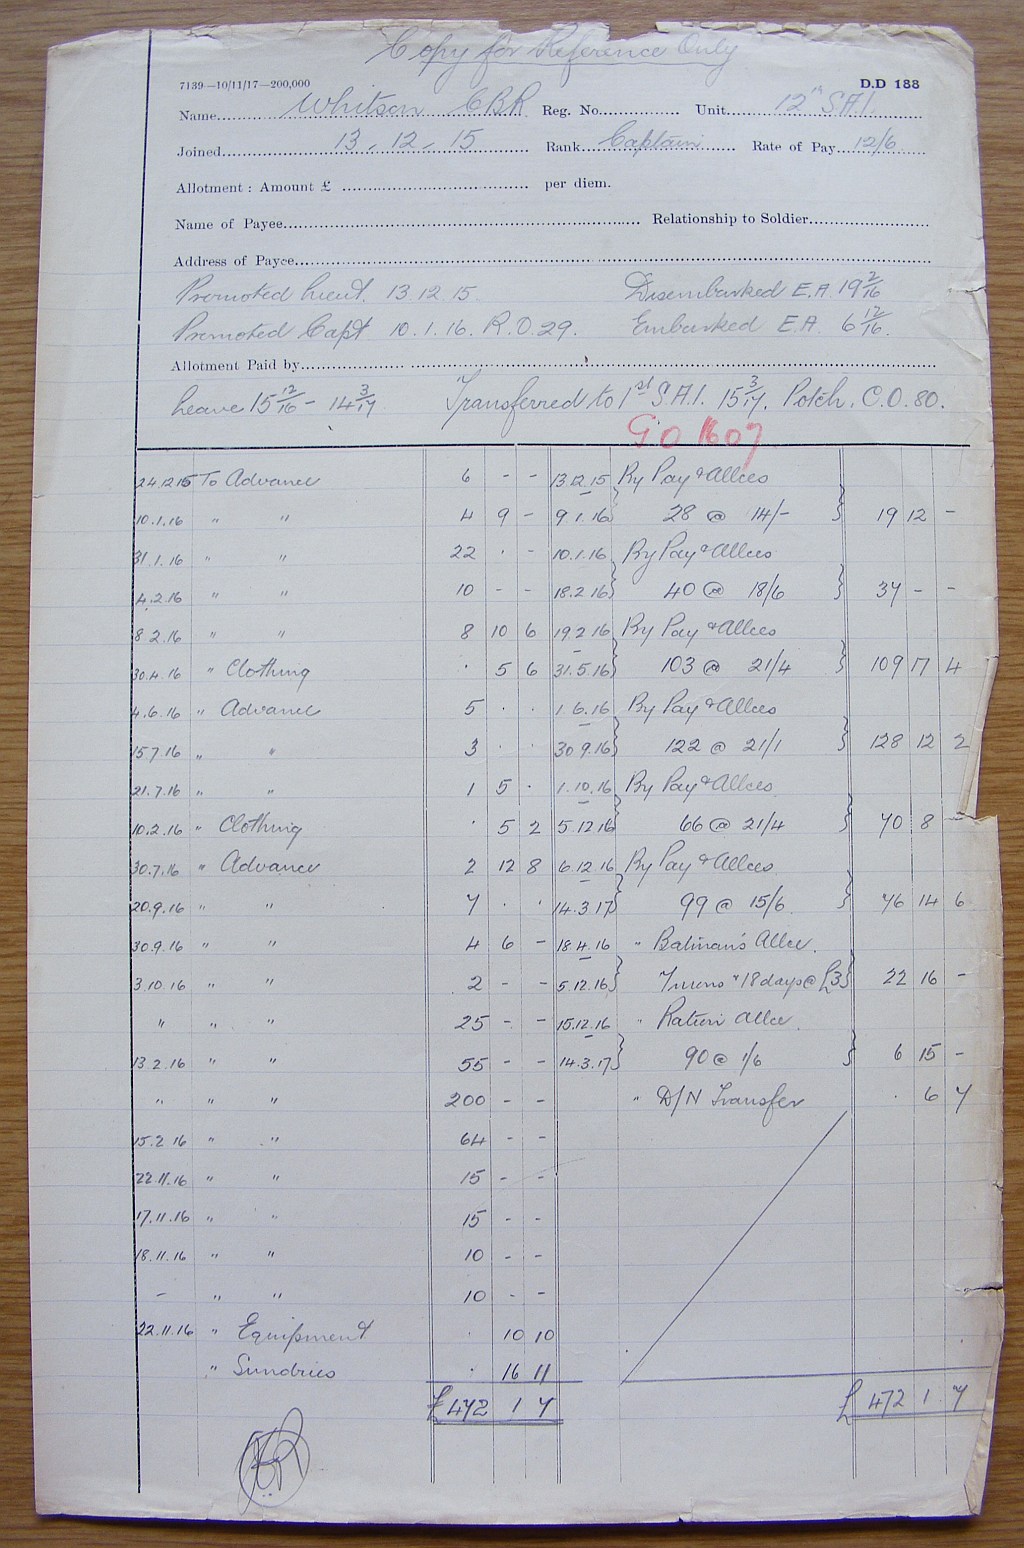 Copy for Reference Only
7139—10/11/17—200,000 D.D 188
Name Whitson CBR Reg. No. Unit 12th S.A.I.
Joined 13.12.15 Rank Captain Rate of Pay 12/6
Allotment : Amount £ per diem.
Name of Payee Relationship to Soldier
Address of Payee
Promoted Lieut. 13 12 15 Disembarked E.A. 19 2/16
Promoted Capt 10.1.16. R.O.29. Embarked E.A. 6 12/16.
Allotment Paid by
Leave 15 12/16 - 14 3/17 Transferred to 1st S.A.I. 15 3/17. Potch. C.O. 80.
GO 1607
24.12.15 To Advance 6 - - 13.12.15 By Pay & Allces
10.1.16 " " 4 9 - 9.1.16 28 @ 14/- 19 12 -
31.1.16 " " 22 . - 10.1.16 By Pay & Allces
4.2.16 " " 10 - - 18.2.16 40 @ 18/6 37 - -
8 2.16 " " 8 10 6 19.2.16 By Pay & Allces
30.4.16 " Clothing . 5 6 31.5.16 103 @ 21/4 109 17 4
4.6.16 " Advance 5 . . 1.6.16 By Pay & Allces
15.7.16 " " 3 . . 30.9.16 122 @ 21/1 128 12 2
21.7.16 " " 1 5 . 1.10.16 By Pay & Allces
10.2.16 " Clothing . 5 2 5.12.16 66 @ 21/4 70 8 -
30.7.16 " Advance 2 12 8 6.12.16 By Pay & Allces
20.9.16 " " 7 . . 14.3.17 99 @ 15/6 76 14 6
30.9.16 " " 4 6 - 18.4.16 " Batman's Allce.
3.10.16 " " 2 - - 5.12.16 7 mons & 18 days @ £3 22 16 -
" " " 25 - - 15.12.16 " Ration Allce.
13 2.16 " " 55 - - 14.3.17 90 @ 1/6 6 15 -
" " " 200 - - " D/N Transfer . 6 7
15.2 16 " " 64 - -
22.11.16 " " 15 - -
17.11.16 " " 15 - -
18.11.16 " " 10 - -
- " " 10 - -
22.11.16 " Equipment . 10 10
" Sundries . 16 11
£472 1 7 £472 1 7